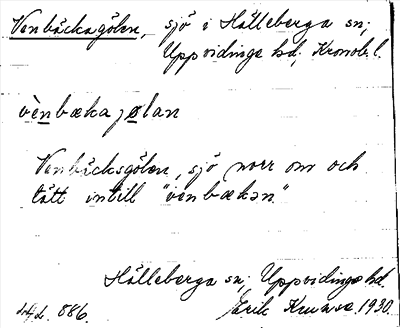 Venbäckagölen, sjö i Hälleberga sn;
Uppvidinge hd, Kronob. l.
vènbæka jølan
Venbäcksgölen, sjö norr om och
tätt intill "vènbækən."
Hälleberga sn, Uppvidinge hd.
886. Erik 1930.